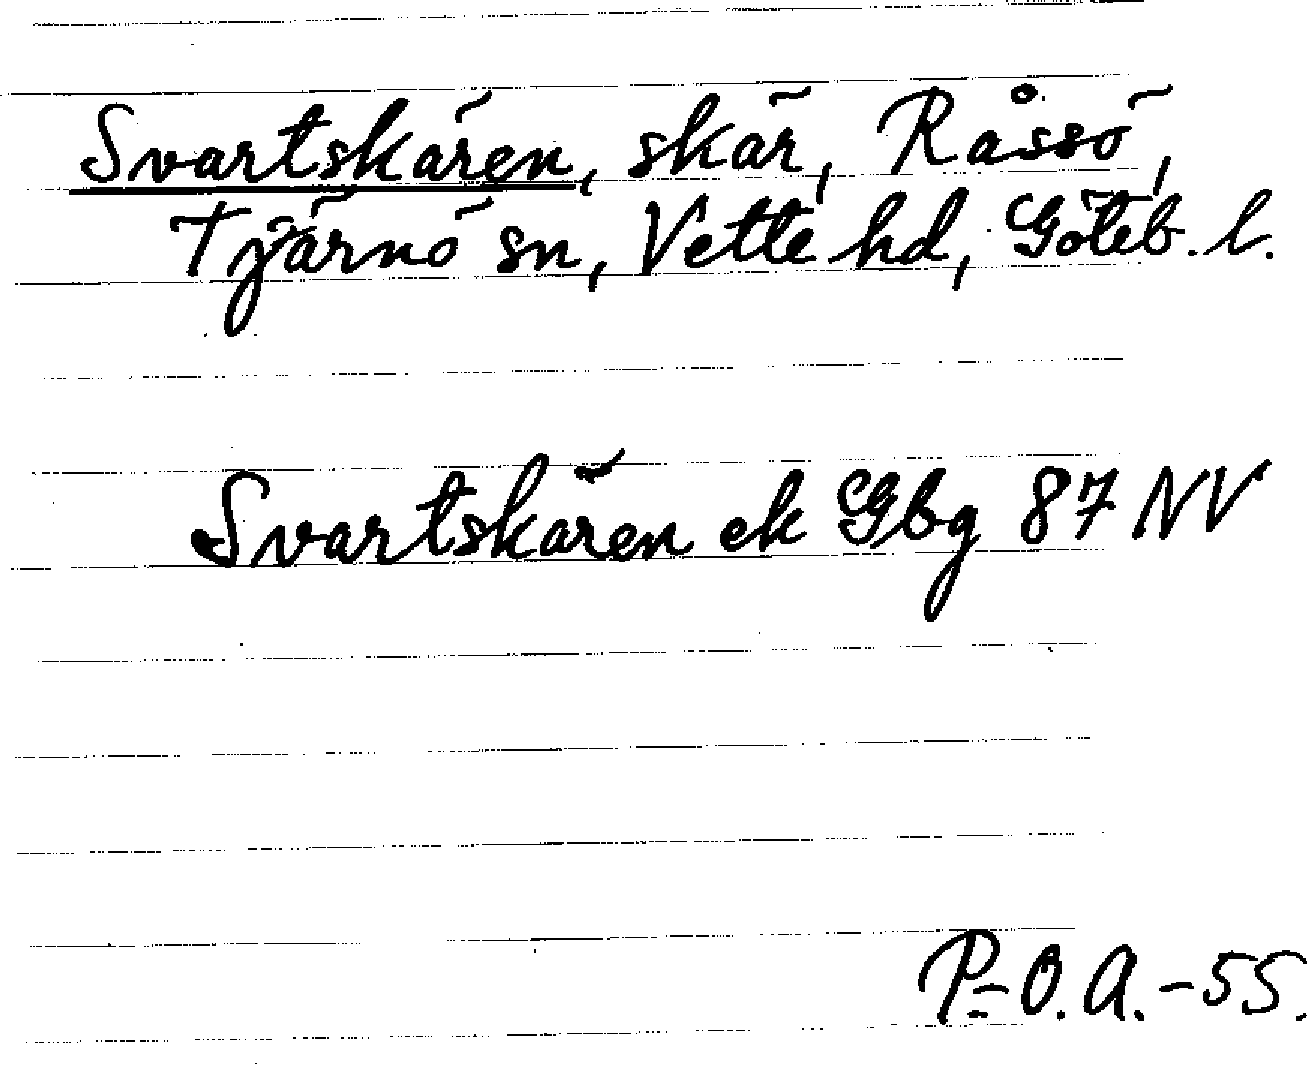 Svartskären, skär, Råssö,
Tjärnö sn, Vette hd, Göteb. l.
Svartskären ek Gbg 87 NV
P-O.A.-55.